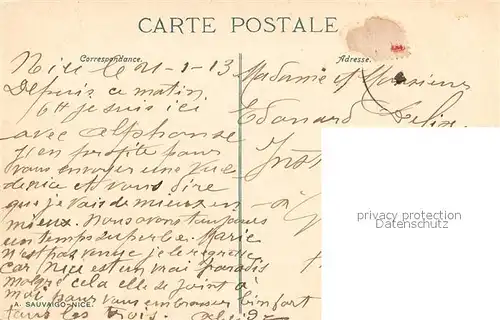 CARTE POSTALE
Correspondance.
Adresse.
Nice le 21-1-13
Depuis ce matin
6H je suis ici
avec Alphonse
j'en profite pour
vous envoyer une vue
de nice et vous dire
que je vais de mieux en
mieux. Nous avons toujours
un temps superbe. Marie
n'est pas venue je le regrette
car Nice est un vrai paradis
malgré cela elle se joint à
moi pour vous embrasser bien fort
tous les trois.
Madame et Monsieur
Edouard
à
privacy protection
Datenschutz
A. SAUVAIGO-NICE.